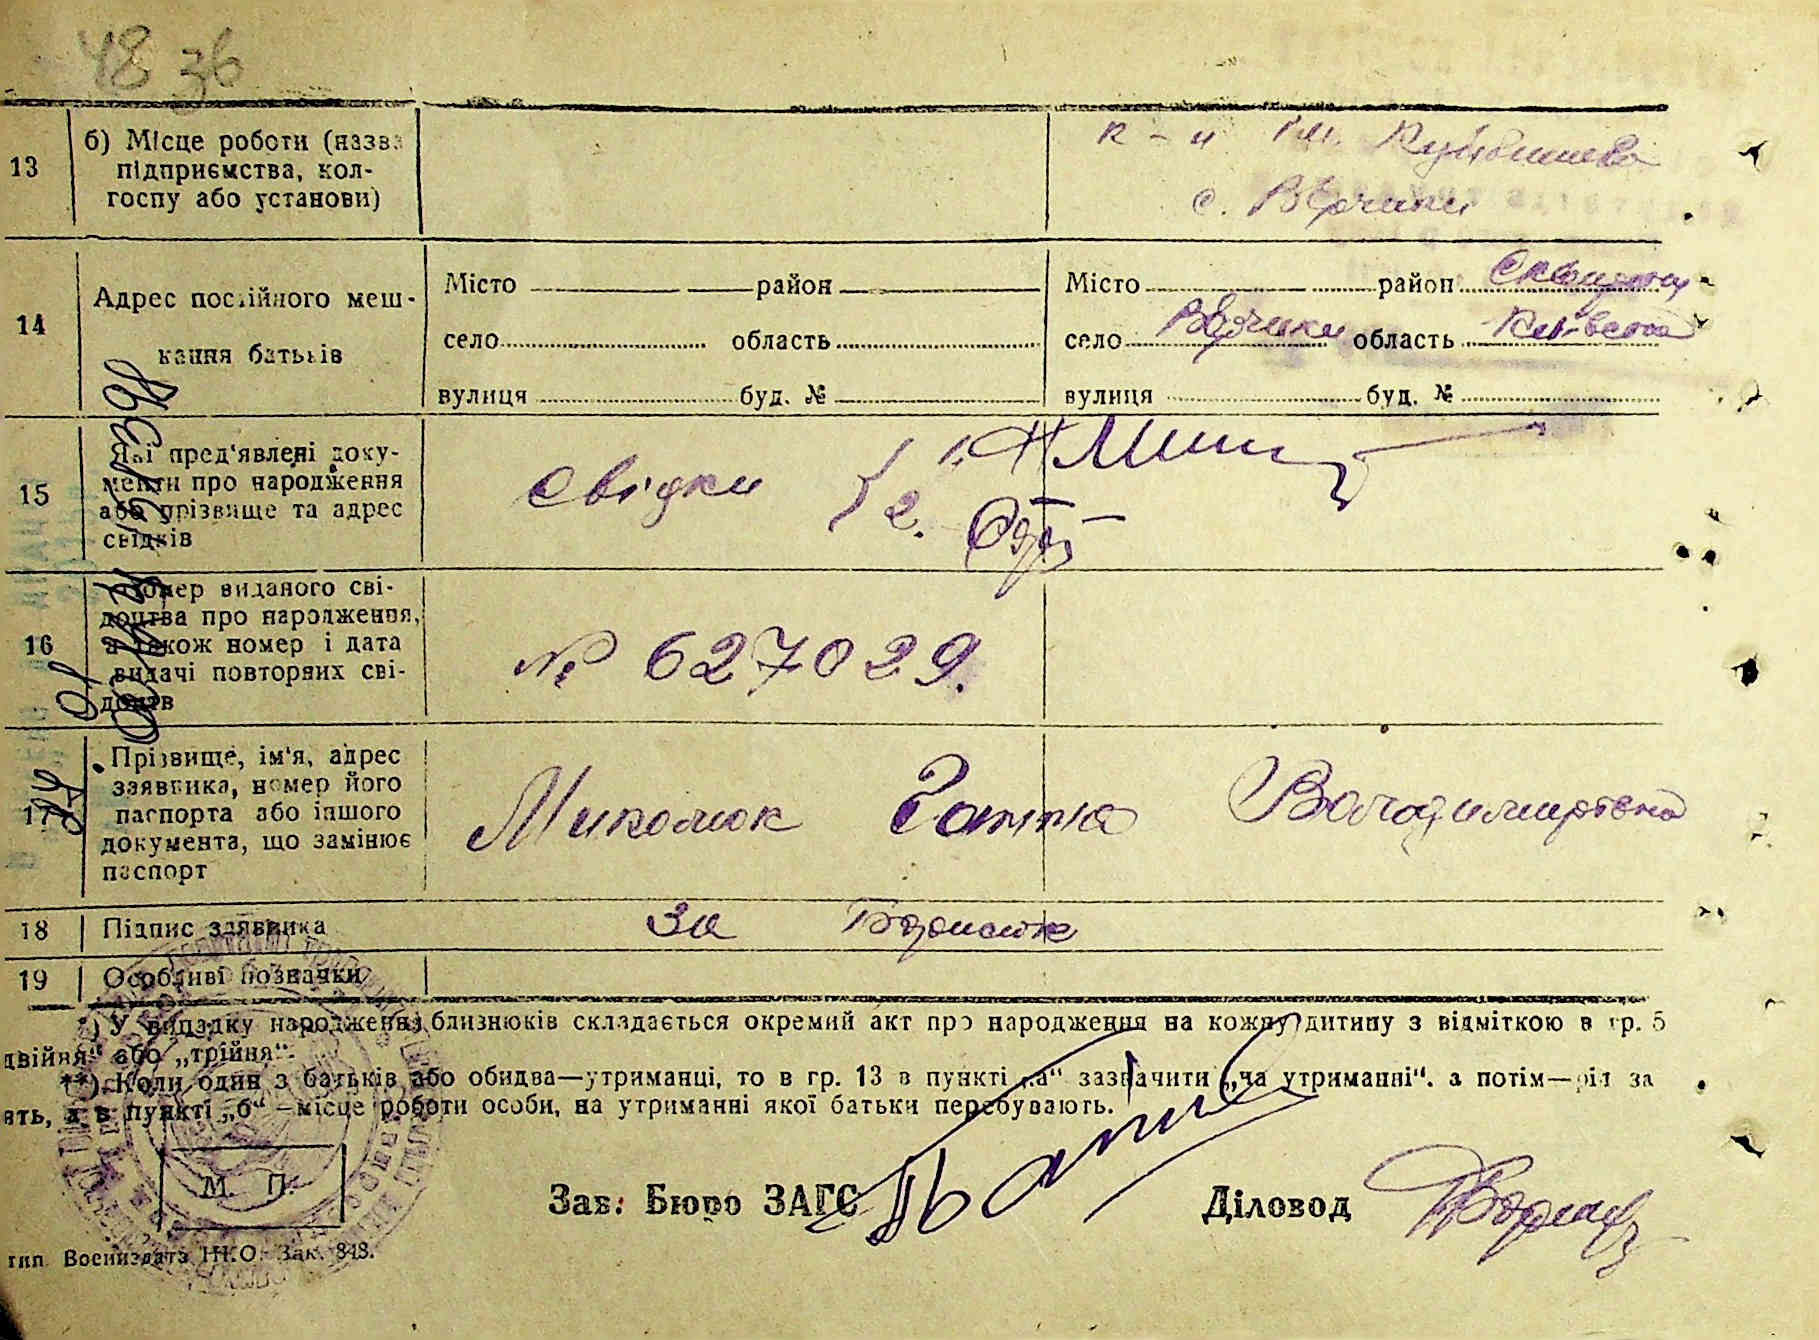 48 зв
13 б) Місце роботи (назва
підприємства, кол-
госпу або установи)
к-п ім. Куйбишева
с. Вірчики
14 Адрес постійного меш-
кання батьків
Місто район Місто район Сквирськ
село область село Вірчики область Київська
вулиця буд. № вулиця буд. №
15 Які пред'явлені доку-
менти про народження
або прізвище та адрес
свідків
Свідки 1.
2.
16 Номер виданого сві-
доцтва про народження,
а також номер і дата
видачі повторних сві-
доцтв
№ 627029.
17 Прізвище, ім'я, адрес
заявника, номер його
паспорта або іншого
документа, що замінює
паспорт
Миколюк Ганна Володимирівна
18 Підпис заявника За
19 Особливі позначки
*) У випадку народження близнюків складається окремий акт про народження на кожну дитину з відміткою в гр. 5
двійня" або „трійня".
**) Коли один з батьків або обидва—утриманці, то в гр. 13 в пункті „а" зазначити „на утриманні". а потім—рід за
ять, а в пункті „б"—місце роботи особи, на утриманні якої батьки перебувають.
М. П.
Зав. Бюро ЗАГС Діловод
тип. Воениздата НКО. Зак. 848.